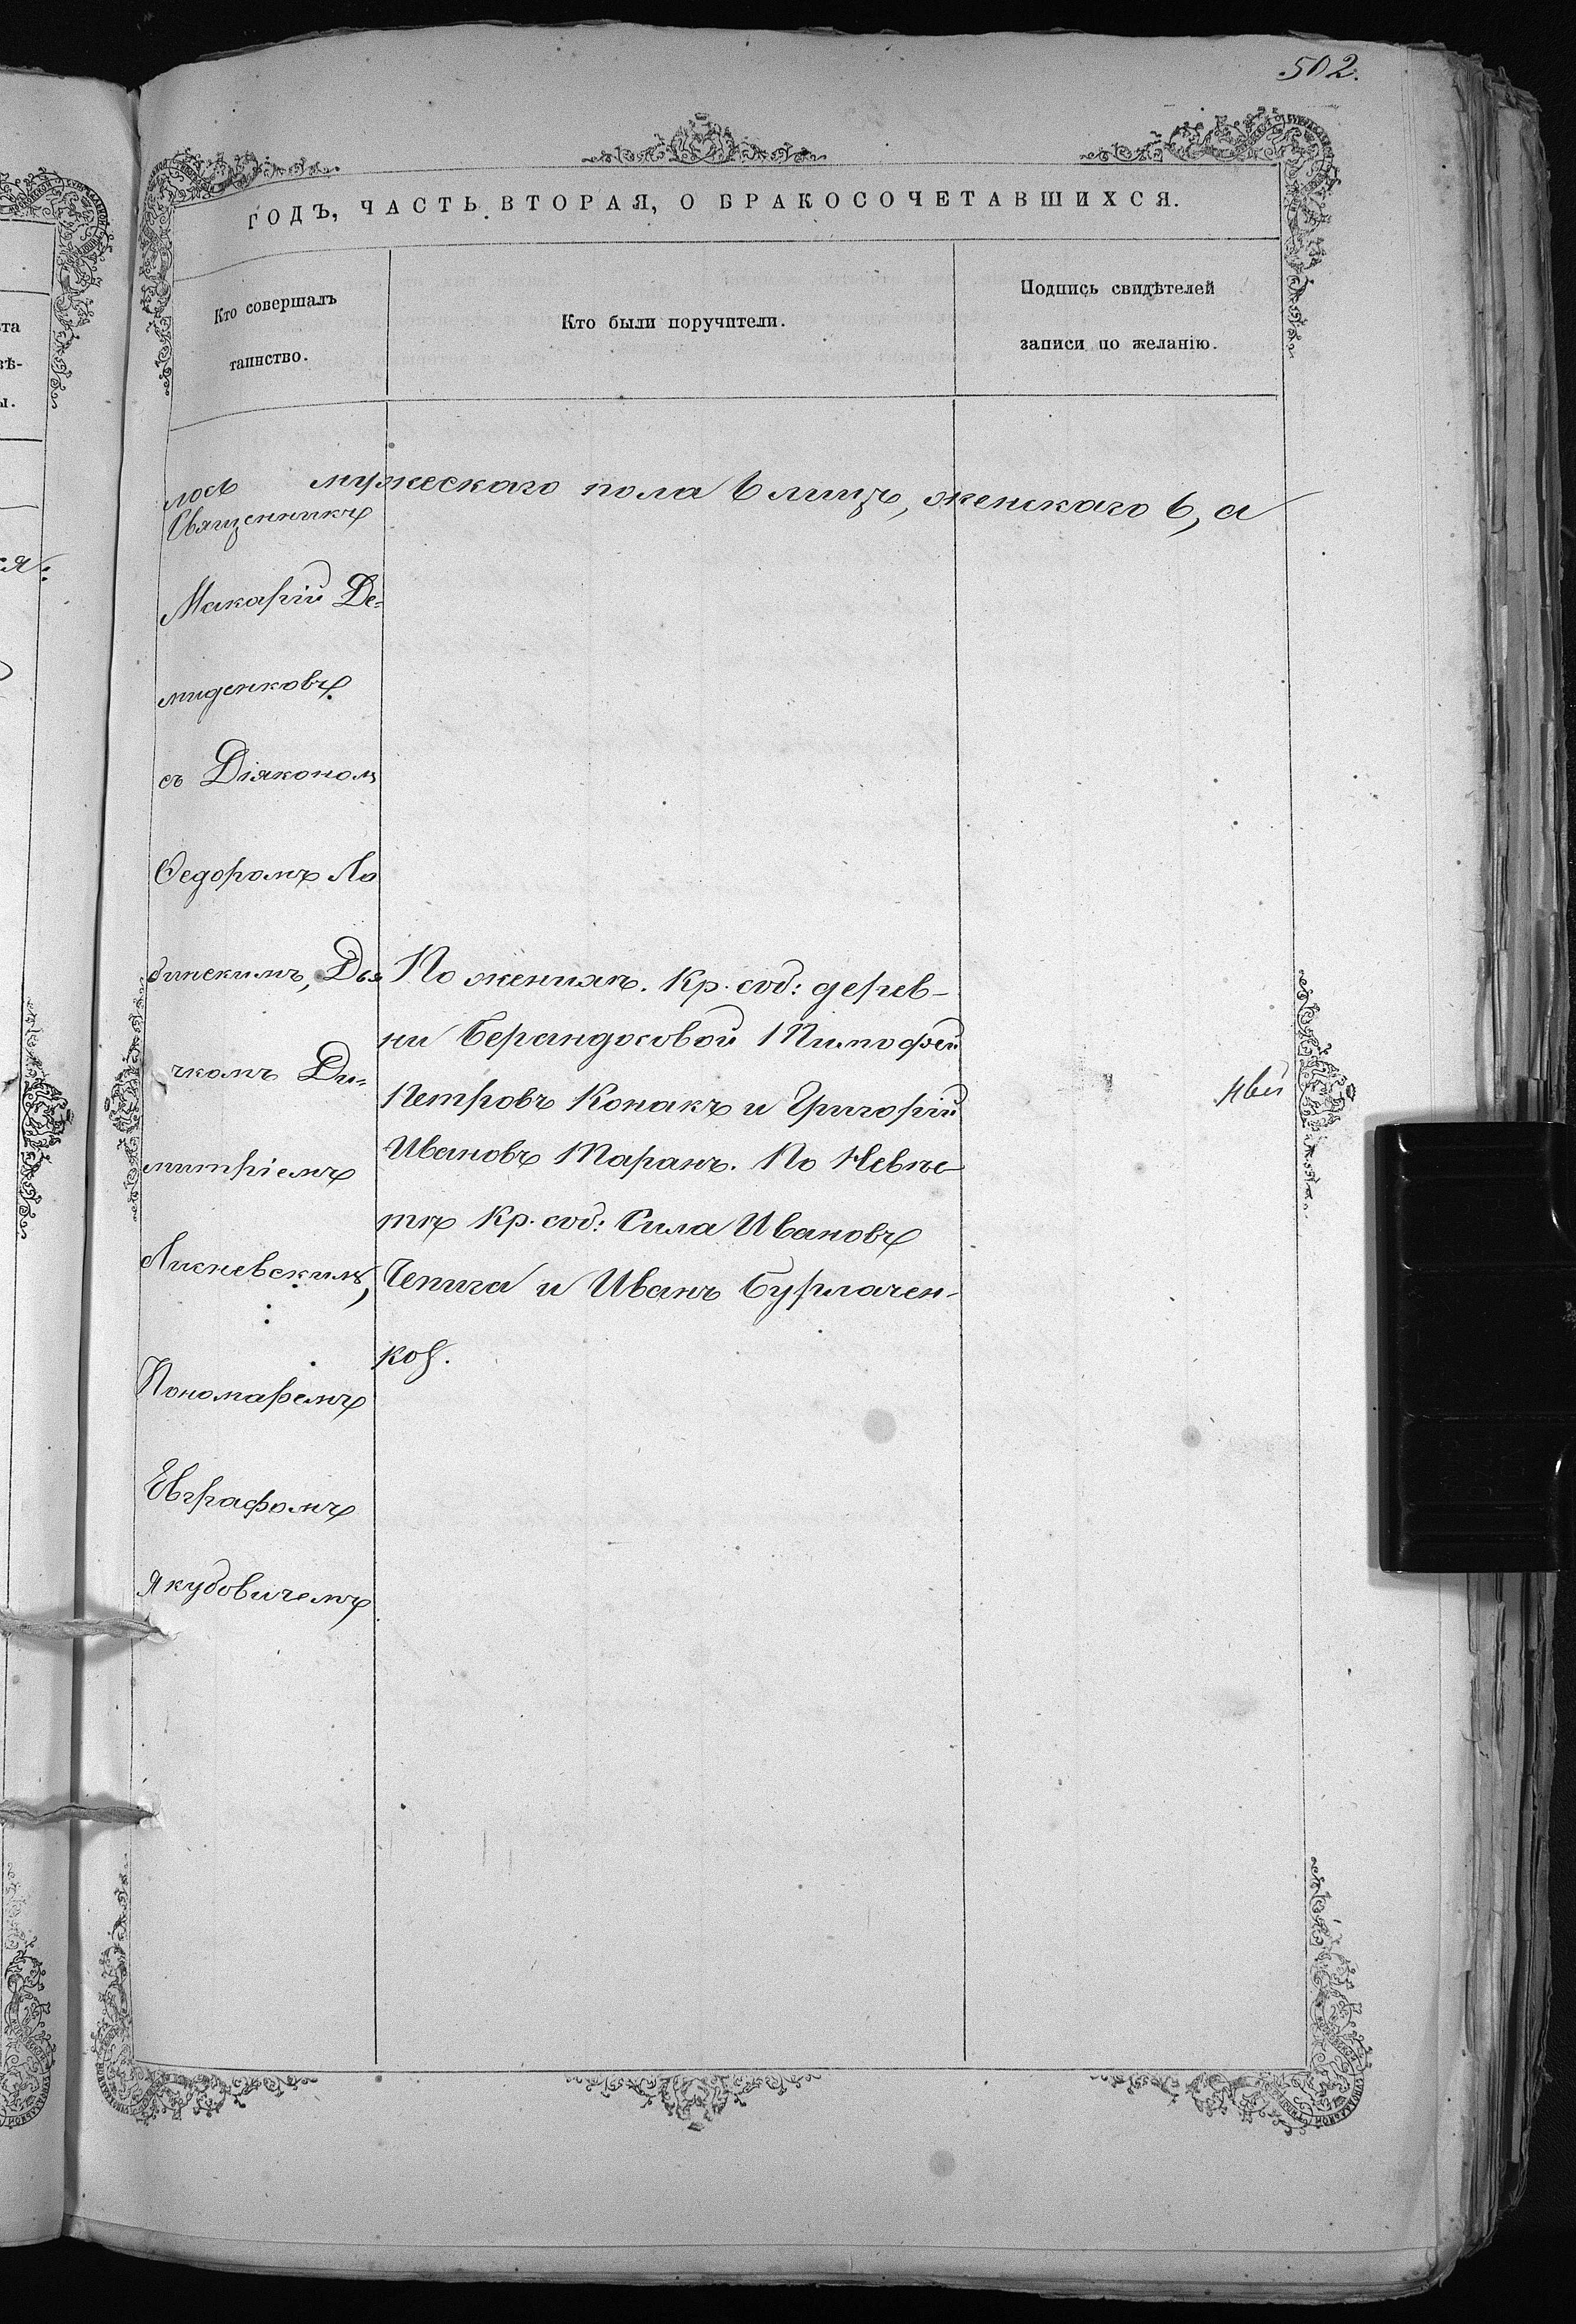 502.
ГОДЪ, ЧАСТЬ ВТОРАЯ, О БРАКОСОЧЕТАВШИХСЯ.
Кто совершалъ
таинство.
Кто были поручители.
Подпись свидѣтелей
записи по желанію.
лось мужескаго пола 6 лицъ, женскаго 6, а
Священникъ
Макарій Де-
миденковъ
съ Діякономъ
Ѳедоромъ Ло
бинскимъ, Дья
чкомъ Ди-
митріемъ
Лисневскимъ,
Пономаремъ
Евграфомъ
Якубовичемъ
По женихѣ. Кр. соб: дерев-
ни Берандосовой Тимофей
Петровъ Конакъ и Григорій
Ивановъ Таранъ. По Невѣс-
тѣ Кр. соб: Сила Ивановъ
Чепига и Иванъ Бурлачен-
ковъ.
ста
вѣ-
ы.
ся: